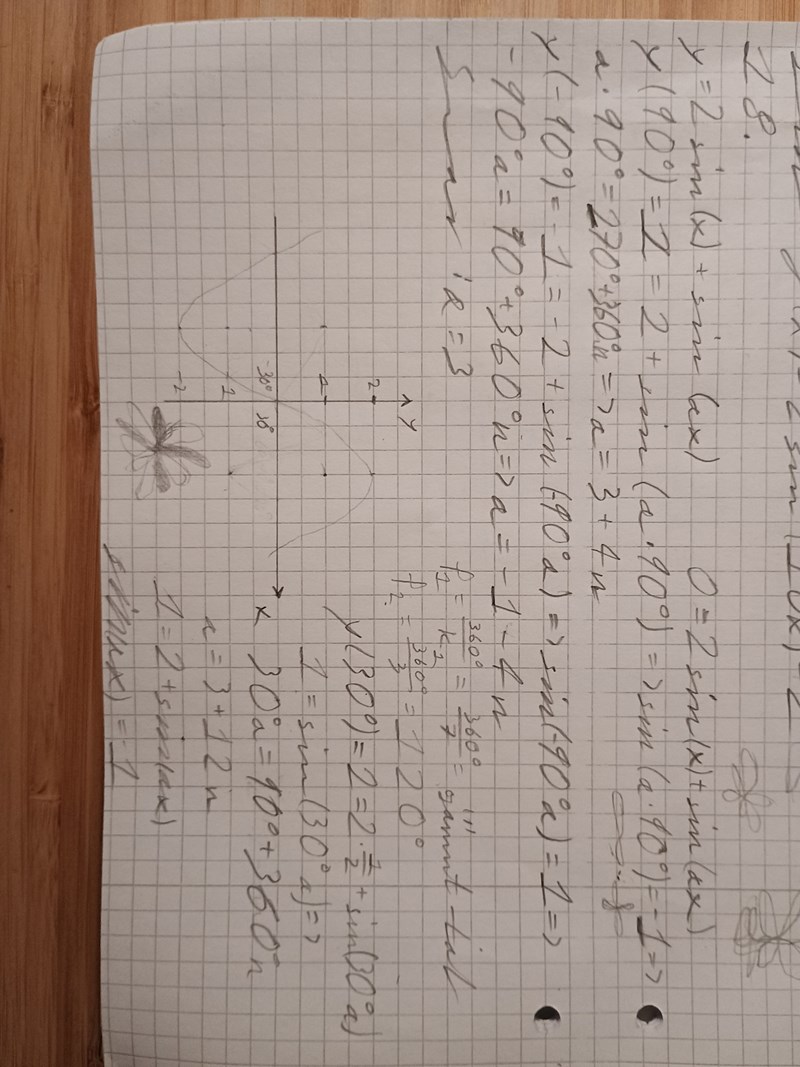 28.
y = 2 sin(x) + sin(ax)   0 = 2 sin(x) + sin(ax)
y(90°) = 1 = 2 + sin(a·90°) => sin(a·90°) = -1 =>
a·90° = 270° + 360°n => a = 3 + 4n
y(-90°) = -1 = -2 + sin(-90°a) => sin(-90°a) = 1 =>
-90°a = 90° + 360°n => a = -1 - 4n
a = 3
p₁ = 360°/k₁ = 360°/1 = "" samt-tal
p₂ = 360°/3 = 120°
y(30°) = 2 = 2·1/2 + sin(30°a)
1 = sin(30°a) =>
30°a = 90° + 360°n
a = 3 + 12n
1 = 2 + sin(ax)
sin(ax) = -1
y
2
1
-30°
30°
x
-1
-2